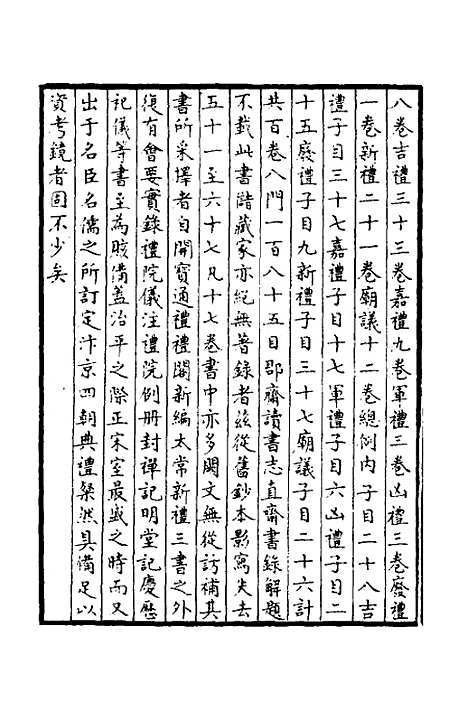 八卷吉禮三十三卷嘉禮九卷軍禮三卷凶禮三卷廢禮
一卷新禮二十一卷廟議十二卷總例內子目二十八吉
禮子目三十七嘉禮子目十七軍禮子目六凶禮子目二
十五廢禮子目九新禮子目三十七廟議子目二十六計
共百卷八門一百八十五目郡齋讀書志直齋書錄解題
不載此書儲藏家亦絕無著錄者玆從舊鈔本影寫失去
五十一至六十七凡十七卷書中亦多闕文無從訪補其
書所采擇者自開寶通禮禮閣新編太常新禮三書之外
復有會要實錄禮院儀注禮院例冊封禪記明堂記慶歷
祀儀等書至為賅備蓋治平之際正宋室最盛之時而又
出于名臣名儒之所訂定汴京四朝典禮粲然具備足以
資考鏡者固不少矣